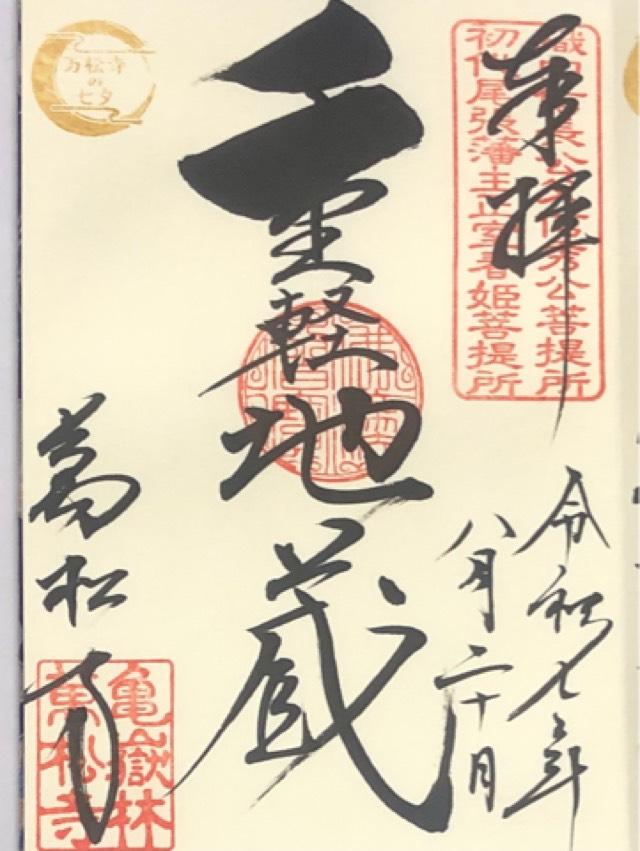 奉拝
織田信長公父信秀公菩提所
初代尾張藩主正室春姫菩提所
令和七年
八月二十日
重軽地蔵
萬松寺
亀嶽林
萬松寺
万松寺
の
七夕